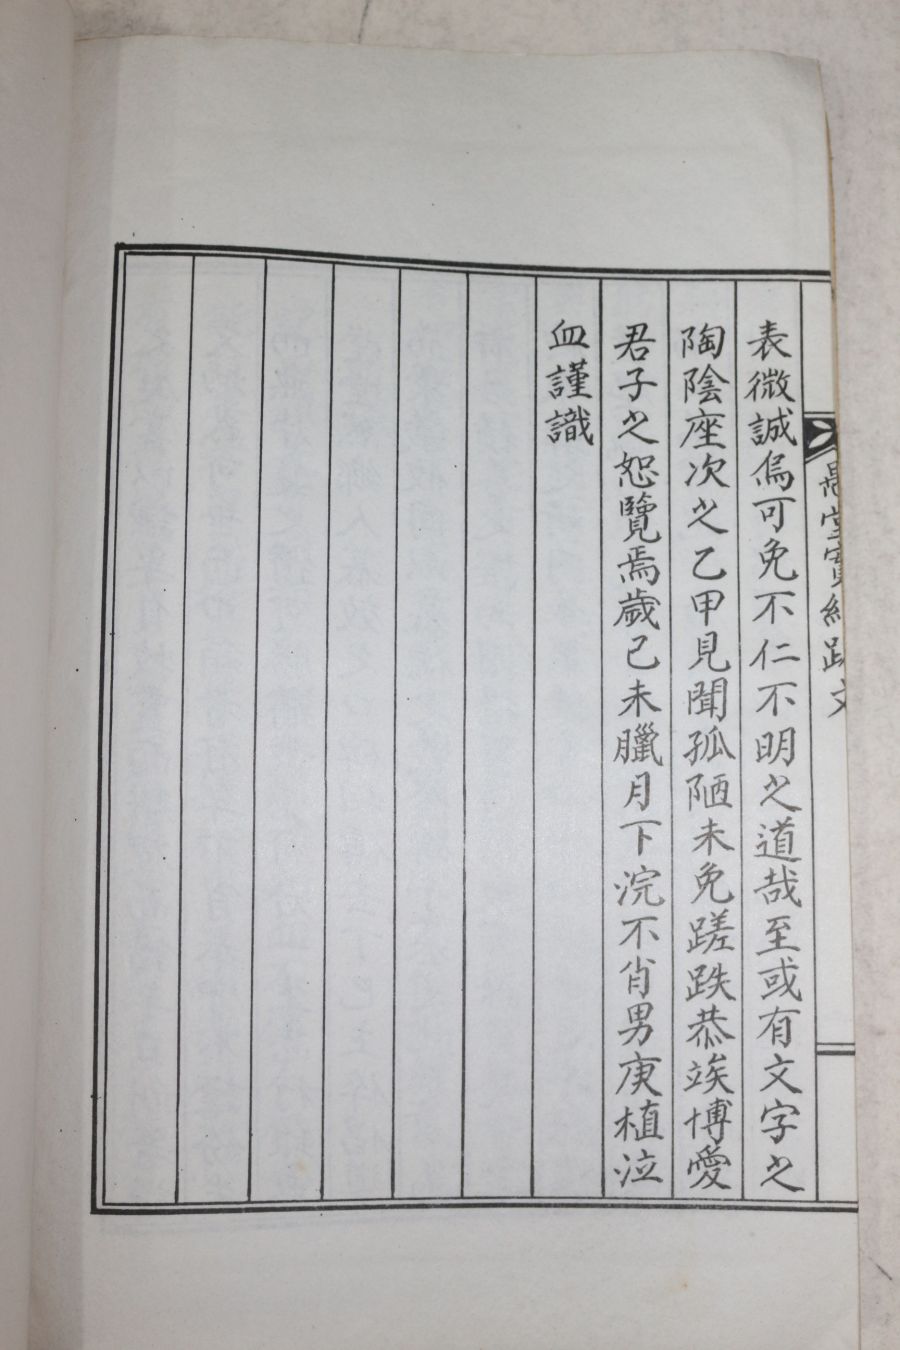 堂實紀跋文
表微誠傿可免不仁不明之道哉至或有文字之
陶陰座次之乙甲見聞孤陋未免蹉跌恭竢博愛
君子之恕覽焉歲己未臘月下浣不肖男庚植泣
血謹識